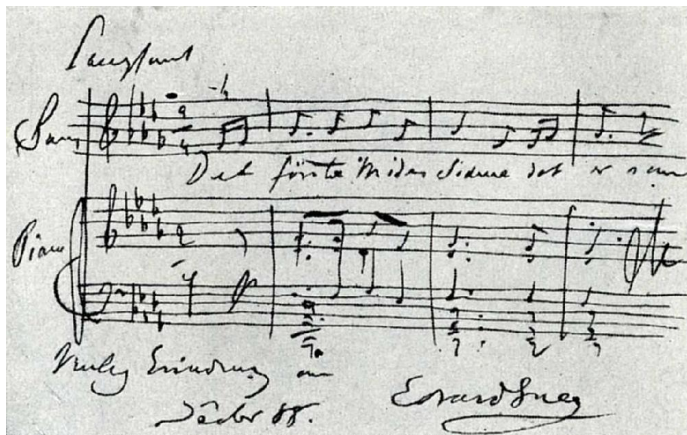 Langsomt
Sang
Det första Mødes Sødme det er som
Piano
Venlig Erindring om
Edvard Grieg